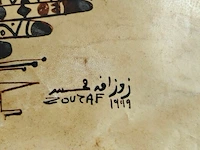 زوزاف محمد
ZOUZAF 1999